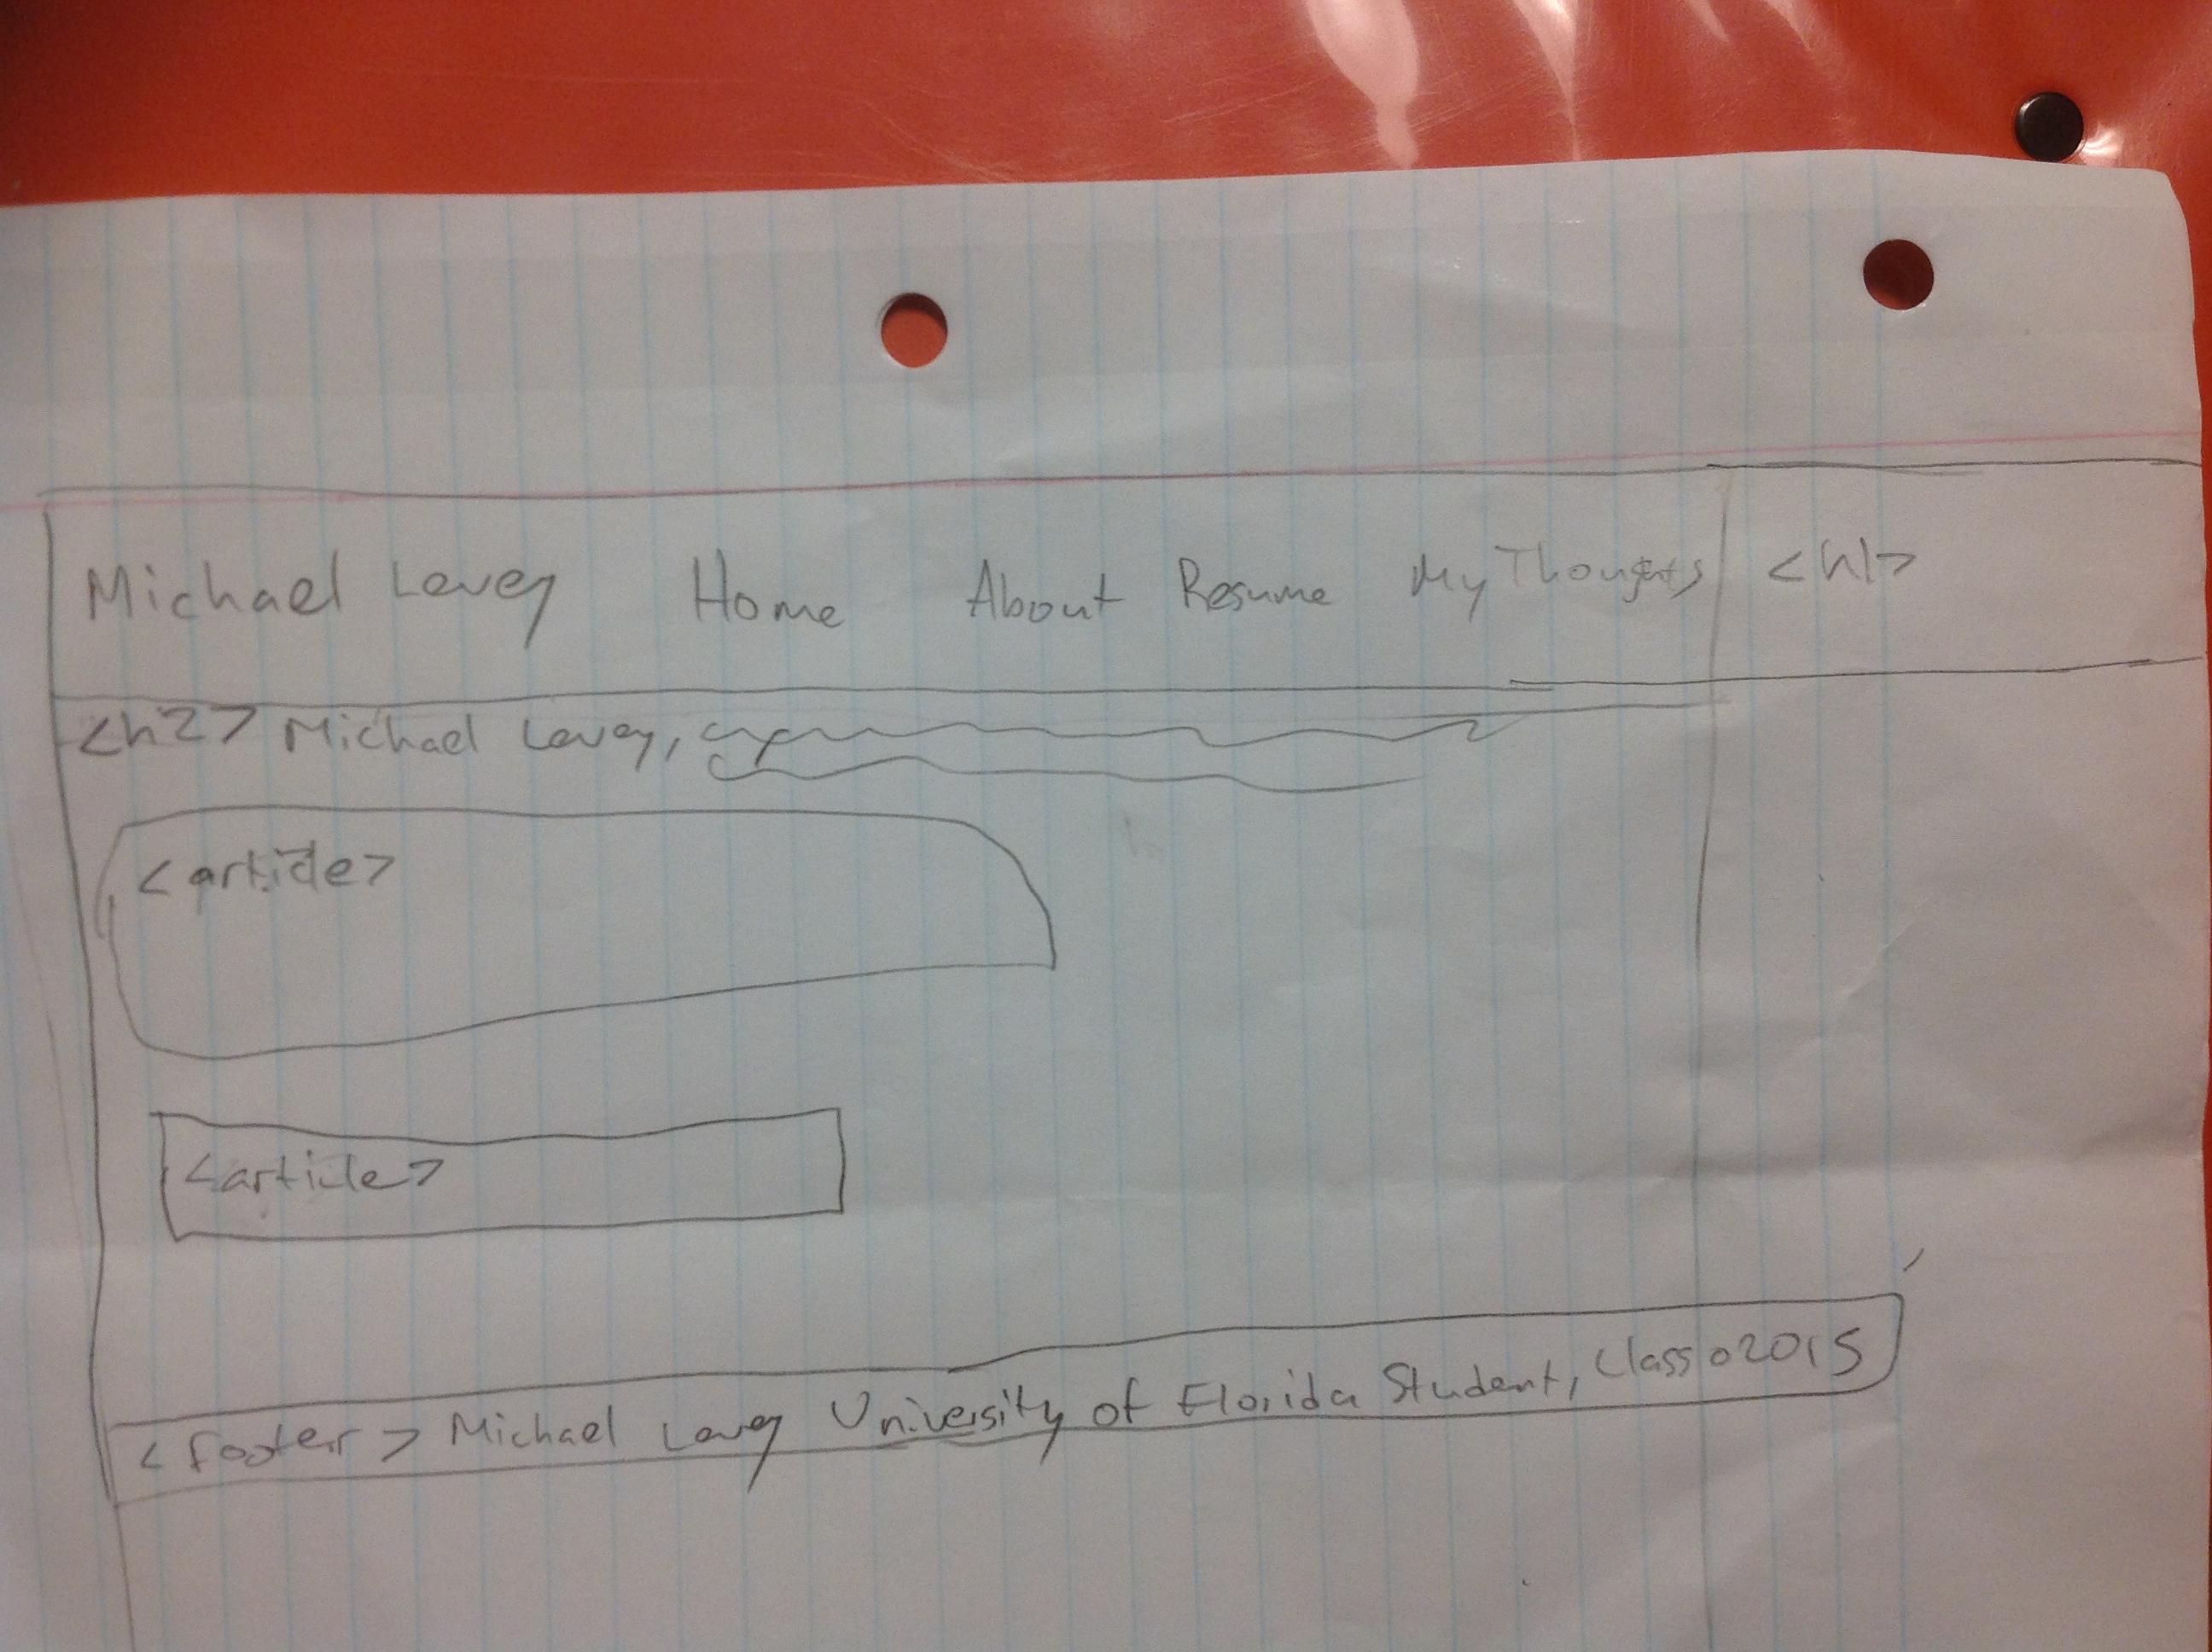 Michael Levey Home About Resume My Thoughts <h1>
<h2> Michael Levey,
<article>
<article>
<footer> Michael Levey University of Florida Student, Class o 2015